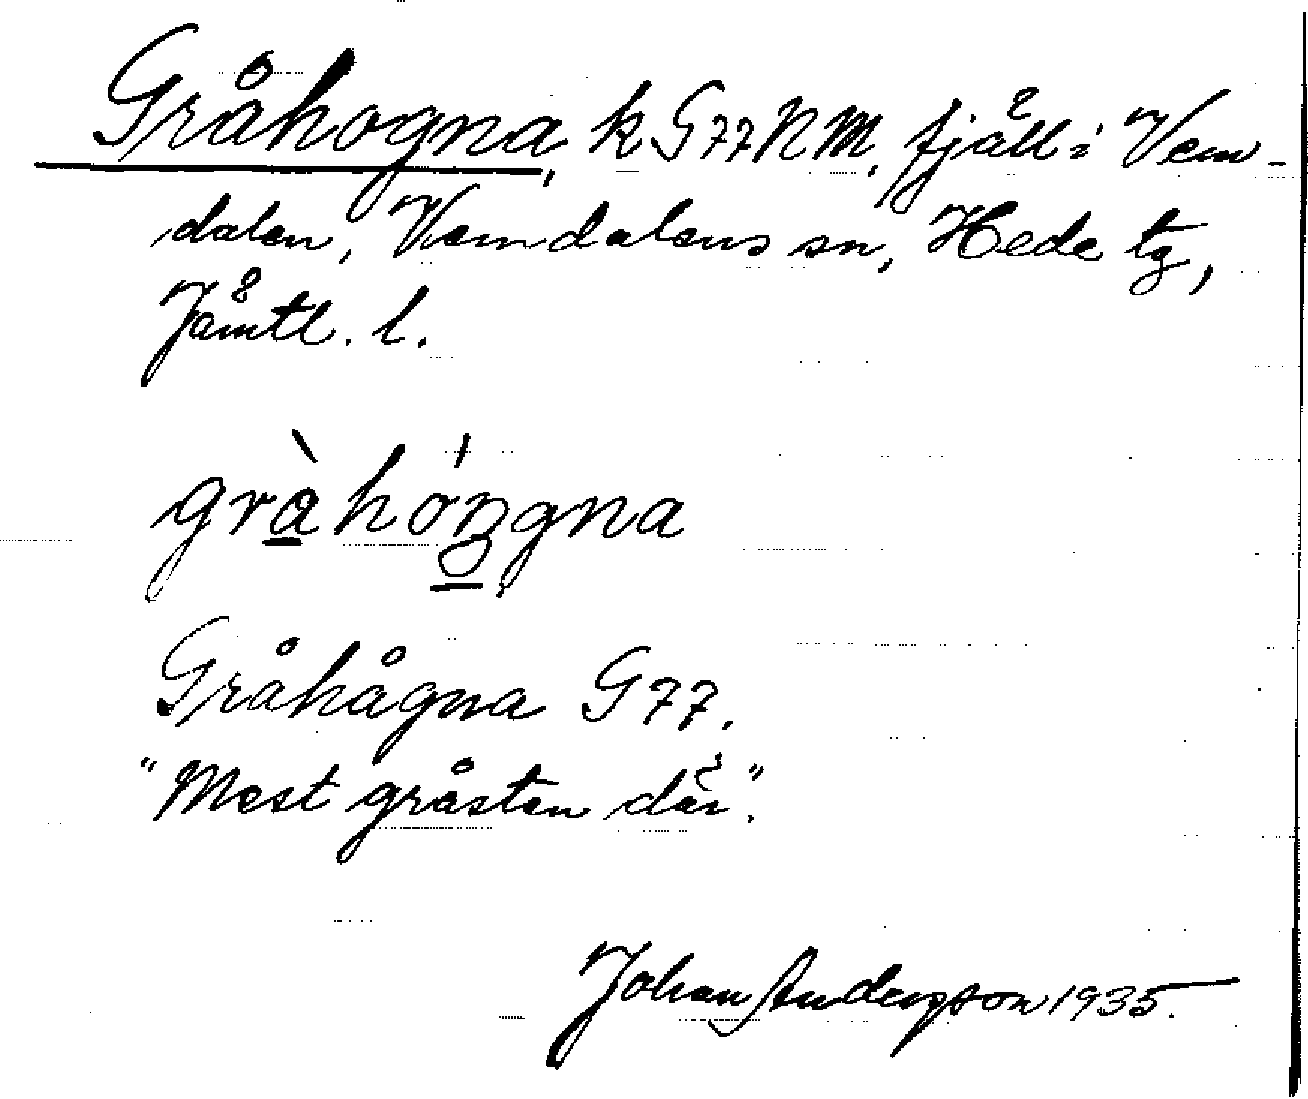 Gråhogna, k G77NM, fjäll i Vem-
dalen, Vemdalens sn, Hede tg,
Jämtl. l.
gràhóŋgna
Gråhågna G77.
"Mest gråsten där".
Johan Andersson 1935.